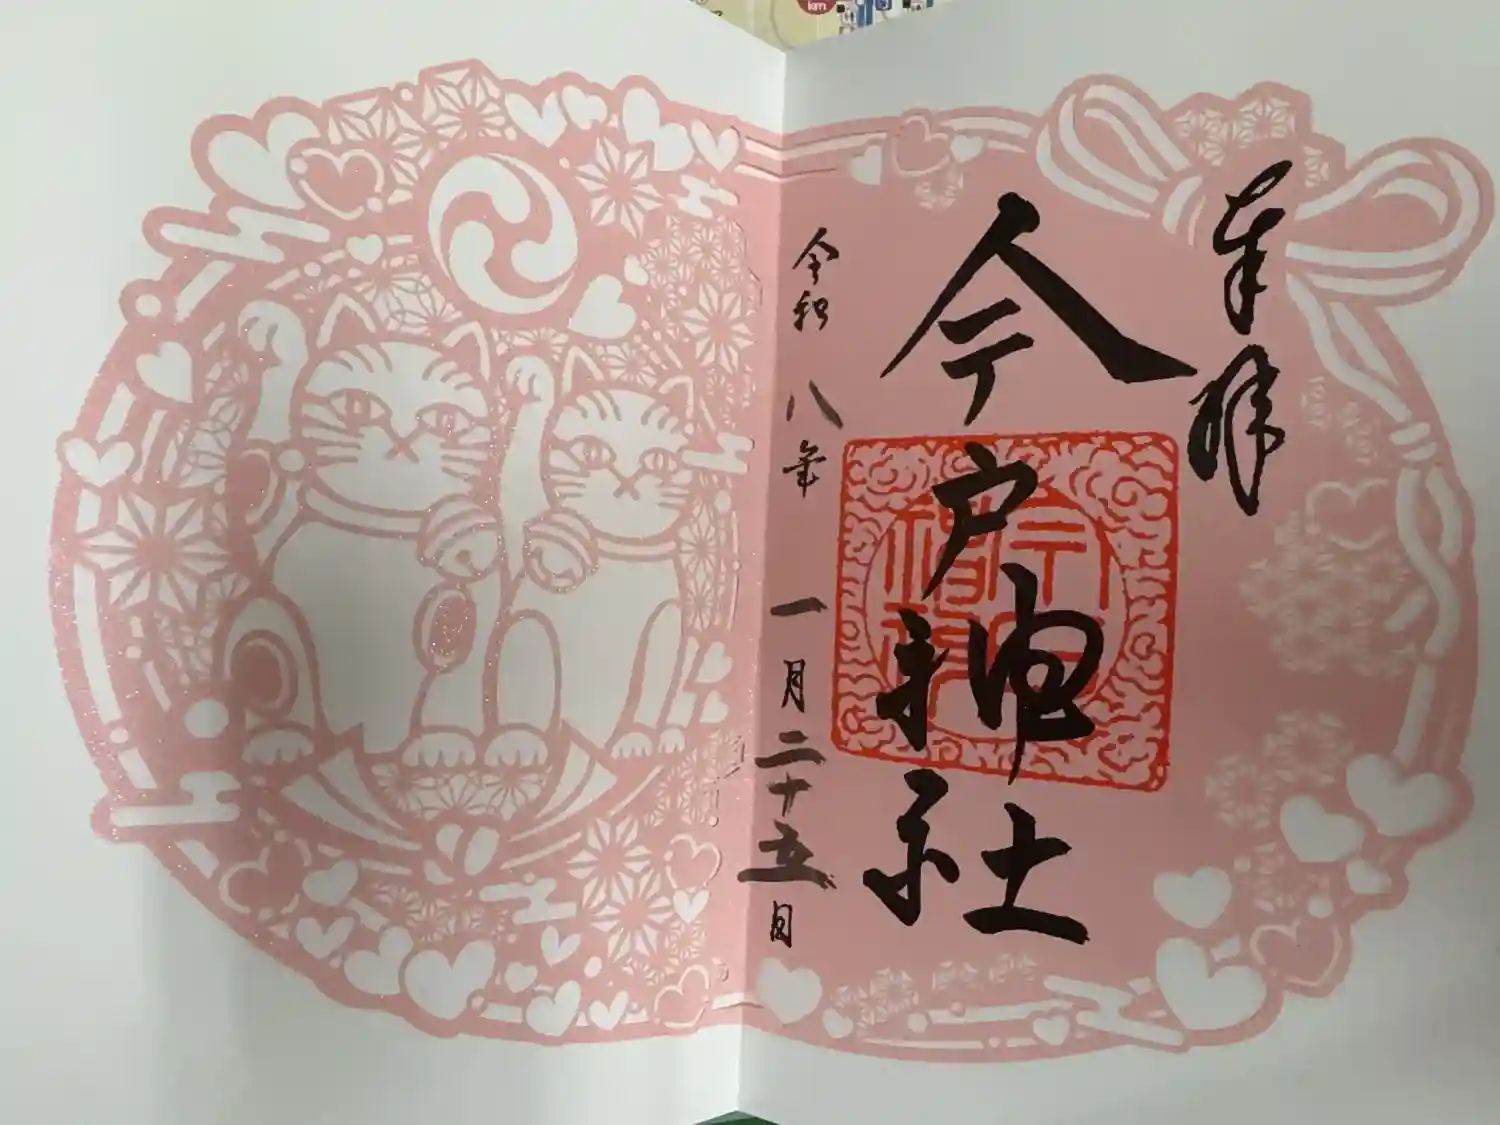 奉拝
今戸神社
令和八年一月二十五日
km